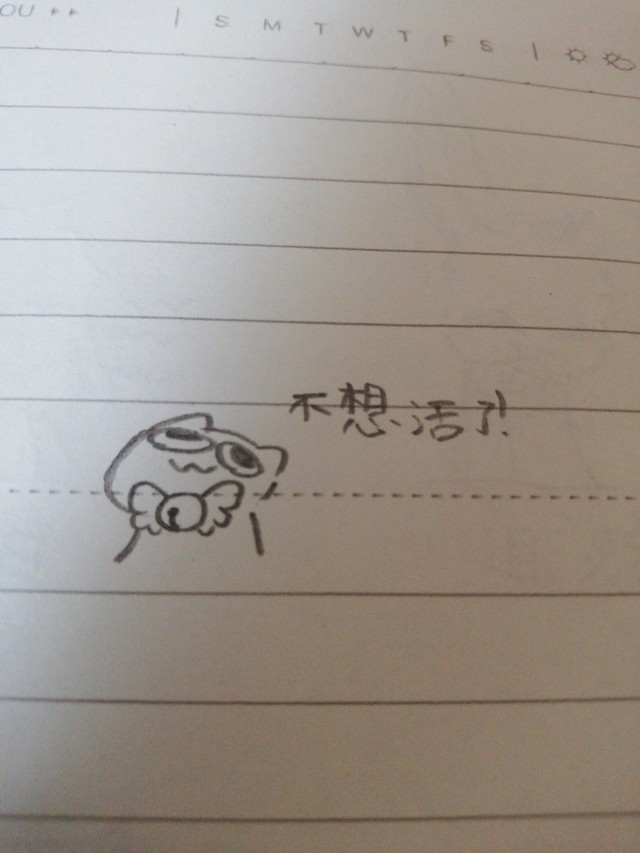 OU | S M T W T F S |
不想活了!